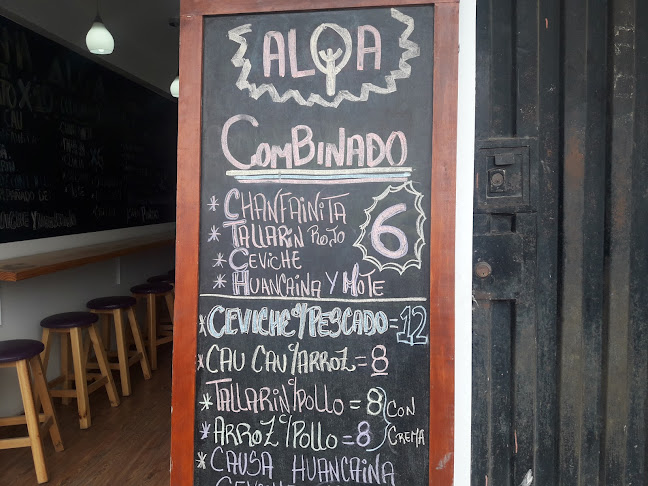 ALOA
COMBINADO
* CHANFAINITA
* TALLARIN ROJO
* CEVICHE
* HUANCAINA Y MOTE
6
* CEVICHE C/ PESCADO = 12
* CAU CAU C/ ARROZ = 8
* TALLARIN C/ POLLO = 8
* ARROZ C/ POLLO = 8
CON
CREMA
* CAUSA HUANCAINA